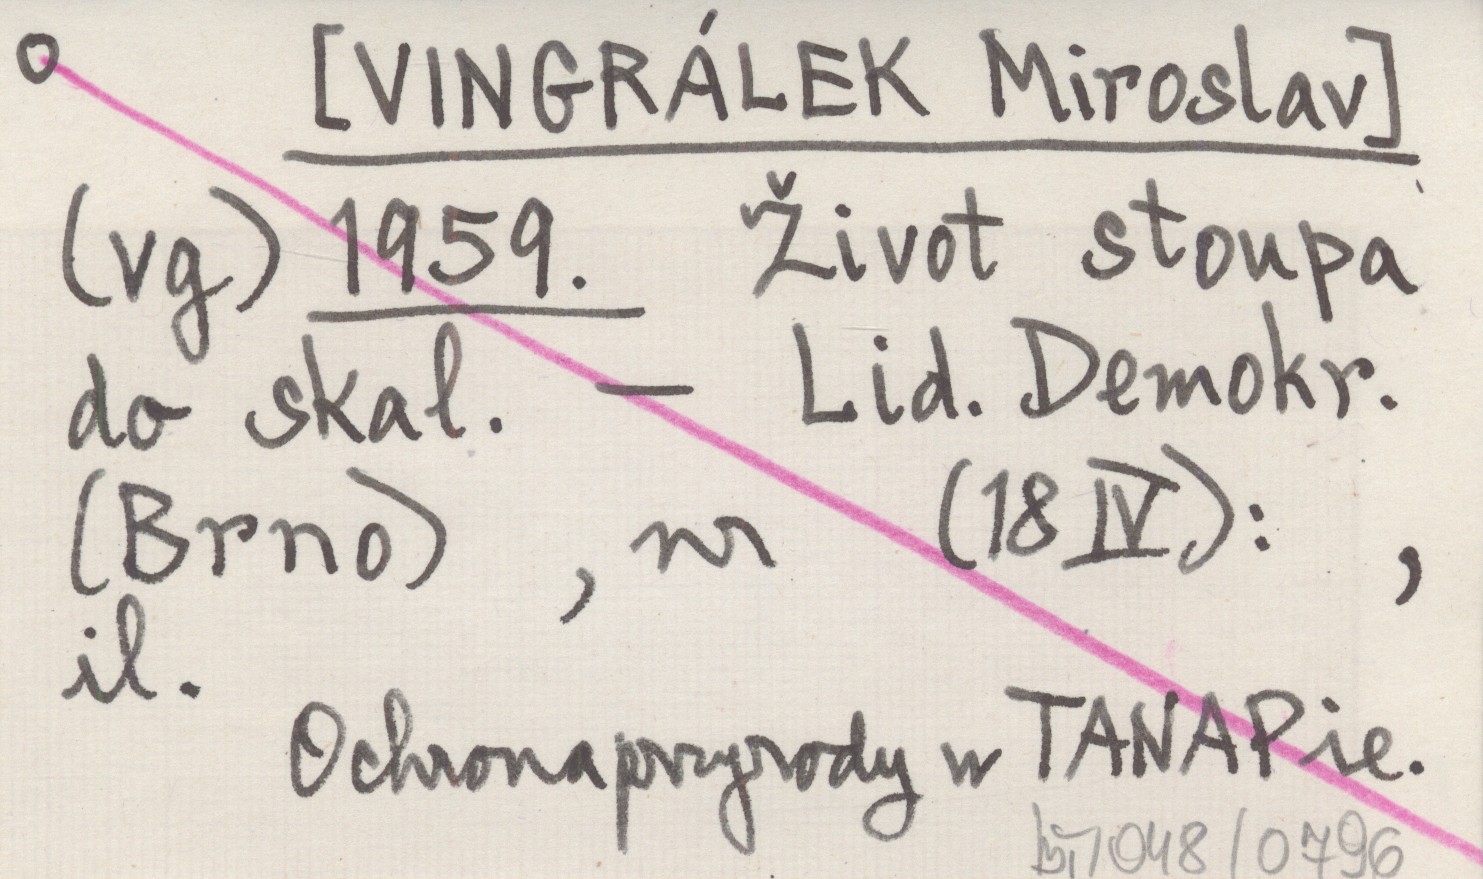 [VINGRÁLEK Miroslav]
(vg) 1959. Život stoupa
do skal. — Lid. Demokr.
(Brno) , nr (18 IV): ,
il.
Ochrona przyrody w TANAPie.
048/0796